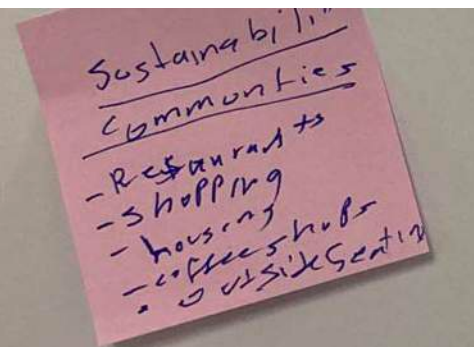 Sustainabili
Communties
- Restaurants
- Shopping
- housing
- coffee shops
. outside Seatin